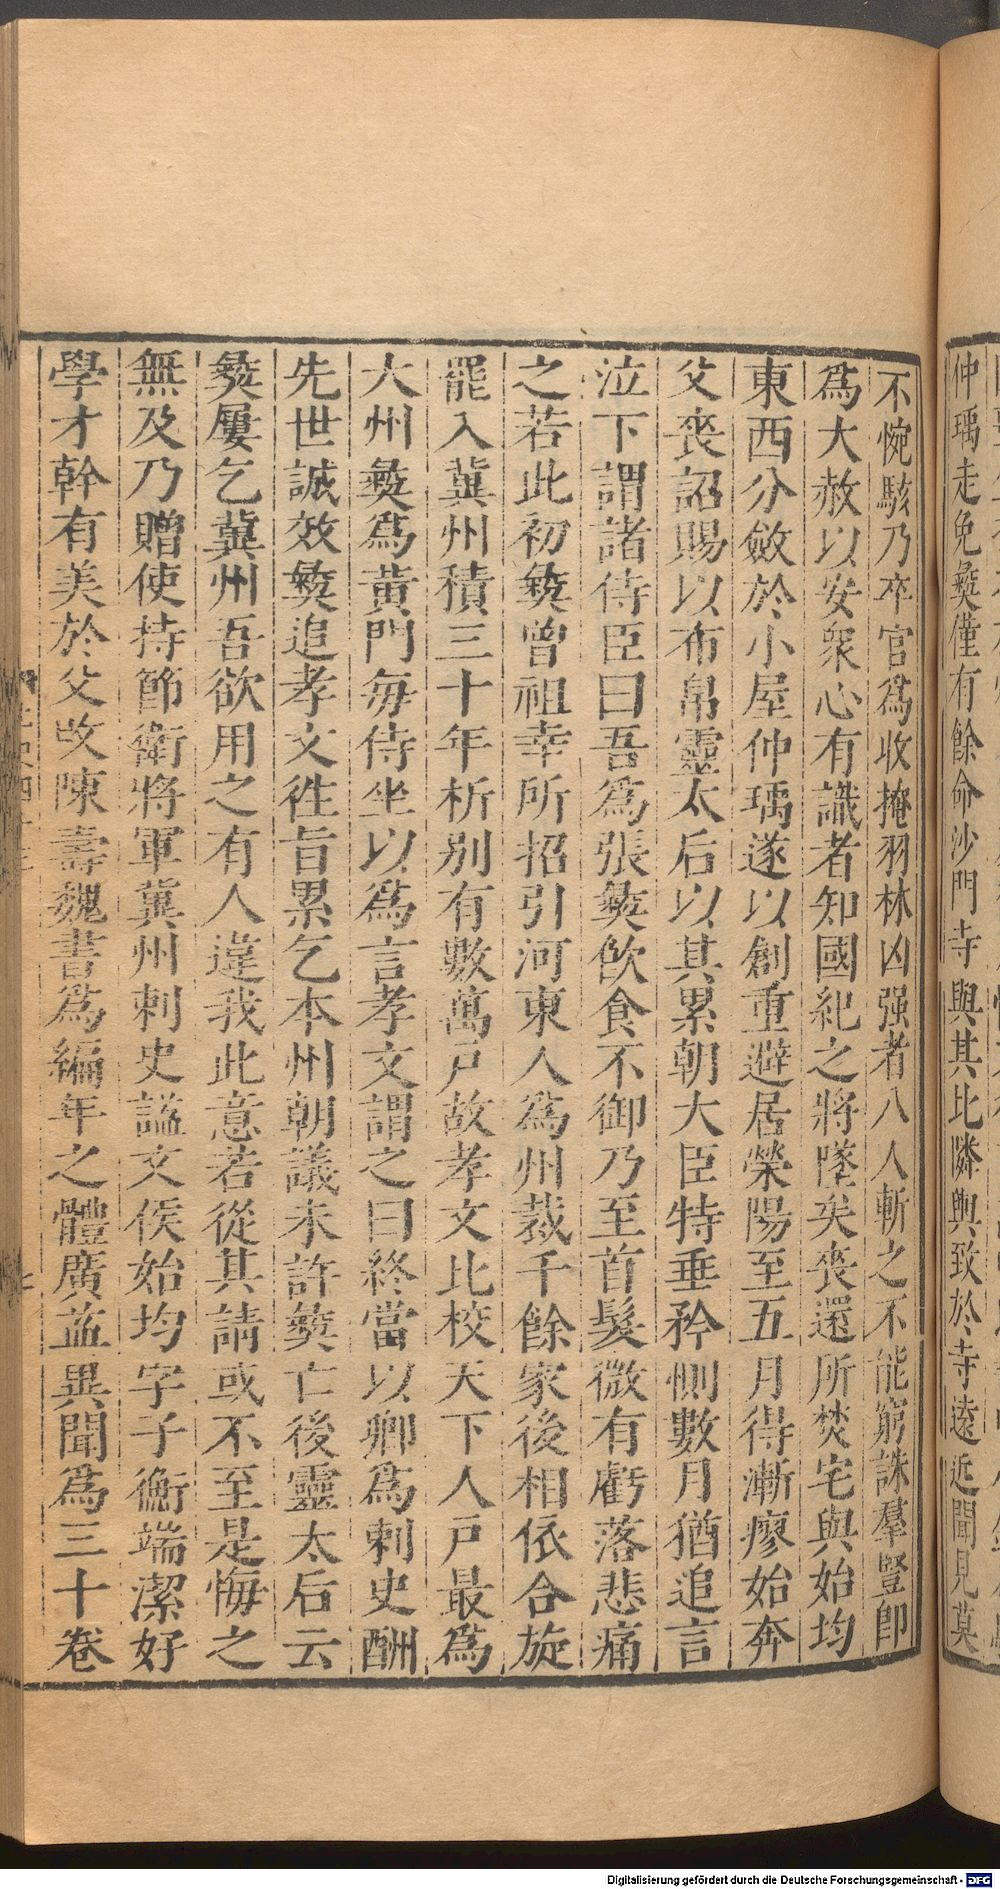 仲瑀走免彝僅有餘命沙門寺與其比隣輿致於寺遠近聞見莫
不惋駭乃卒官爲收掩羽林凶强者八人斬之不能窮誅羣豎卽
爲大赦以安衆心有識者知國紀之將墜矣喪還所焚宅與始均
東西分斂於小屋仲瑀遂以創重避居榮陽至五月得漸瘳始奔
父喪詔賜以布帛靈太后以其累朝大臣特垂矜惻數月猶追言
泣下謂諸侍臣曰吾爲張彝飮食不御乃至首髮微有虧落悲痛
之若此初彝曾祖幸所招引河東人爲州裁千餘家後相依合旋
罷入冀州積三十年析別有數萬戸故孝文比校天下人戸最爲
大州彝爲黃門每侍坐以爲言孝文謂之曰終當以卿爲刺史酬
先世誠效彝追孝文徃旨累乞本州朝議未許彝亡後靈太后云
彝屢乞冀州吾欲用之有人違我此意若從其請或不至是悔之
無及乃贈使持節衛將軍冀州刺史諡文侯始均字子衡端潔好
學才幹有美於父改陳壽魏書爲編年之體廣益異聞爲三十卷
Digitalisierung gefördert durch die Deutsche Forschungsgemeinschaft - DFG